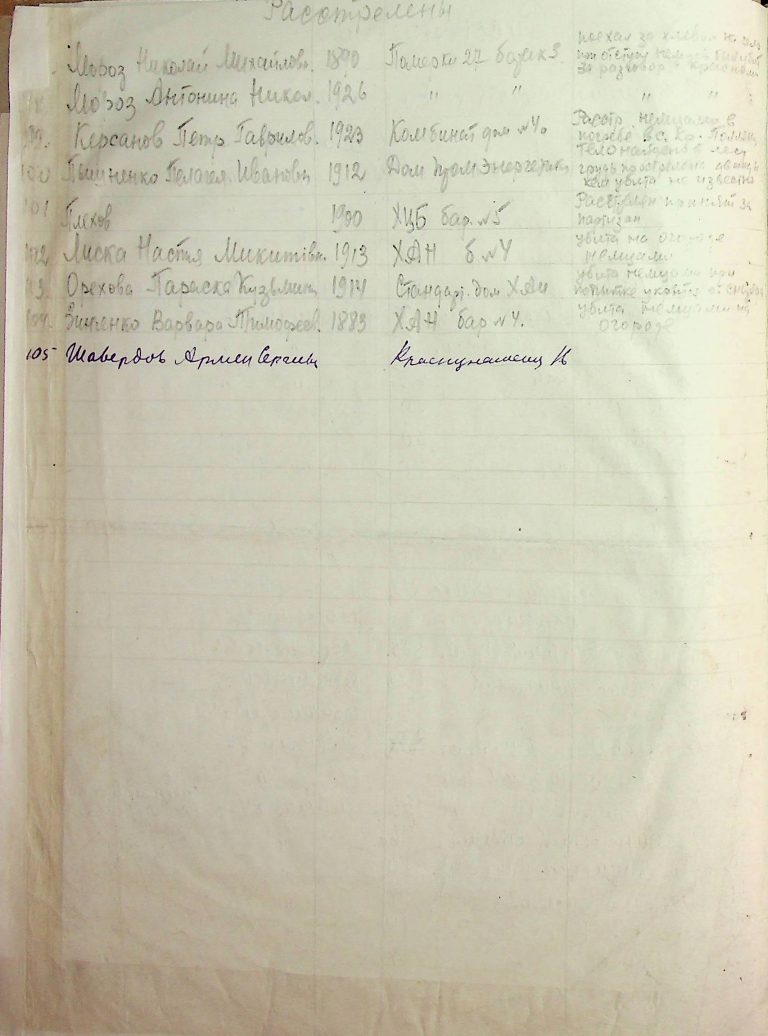 Расстрелены
Мороз Николай Михайлов. 1890 Померки 27 барак 3. поехал за хлебом на
за разговор
Мороз Антонина Никол. 1926 " " " "
99. Керсанов Петр Гаврилов. 1923 Комбинат дом №4. Расстр немцами в
Тело найдено в лесу
100 Пелагея Ивановн 1912 Дом грудь прострелена
кем убита не известно
101 Плехов 1900 ХЦБ бар. №5 Расстрелен принят за
партизан
102 Лиска Настя Микитівн. 1913 ХАН б. №4 убита на огороде
немцами
103. Орехова Параска Кузьмин 1914 Стандарт. дом ХАН убита немцами при
попытке
104. Зинченко Варвара Тимофеев. 1883 ХАН бар №4. убита немцами на
огороде
105 Шавердов Армен